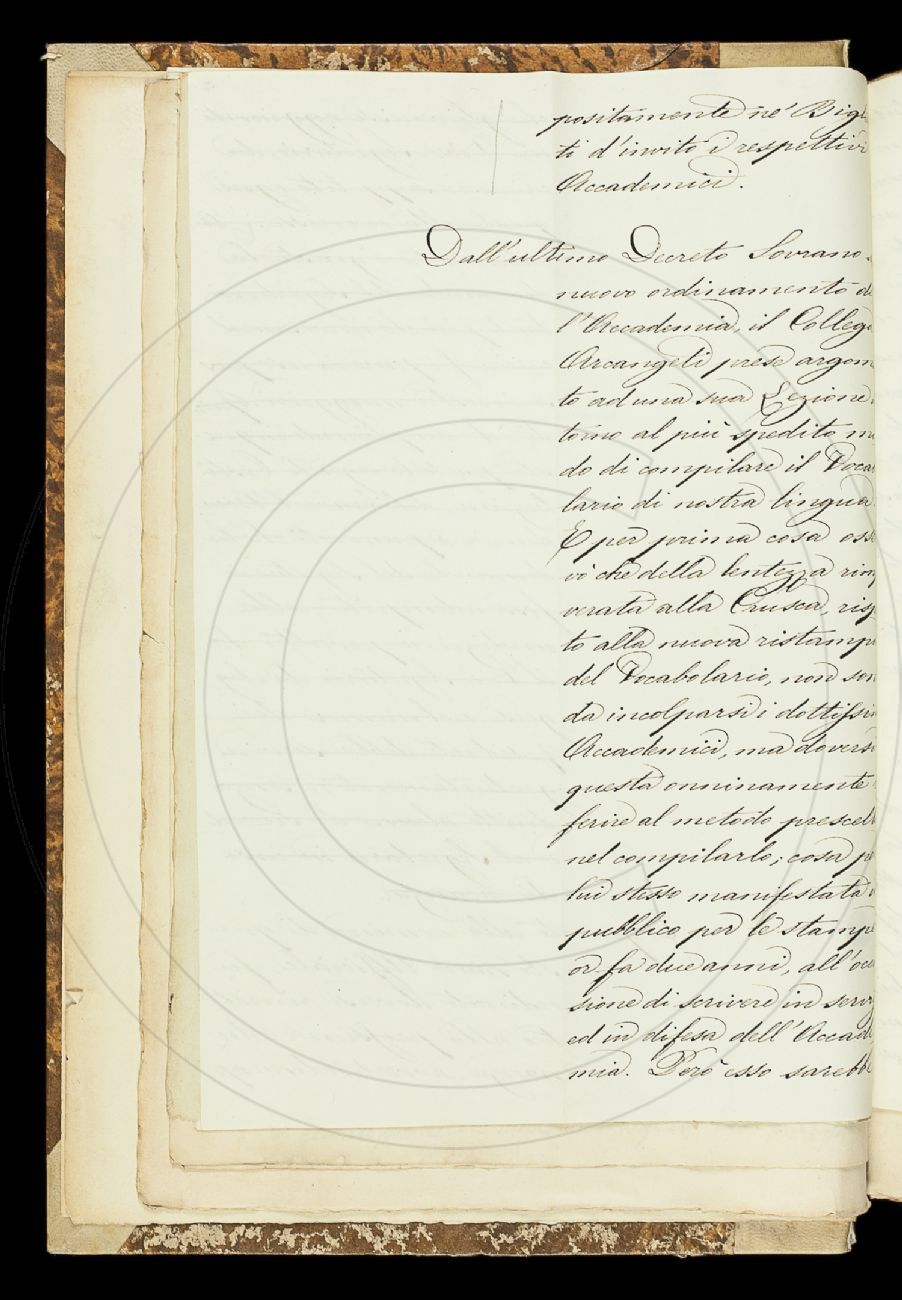 positamente ne' Bigl
ti d'invito i respettivi
Accademici.
Dall'ultimo Decreto Sovrano
nuovo ordinamento de
l'Accademia, il Colleg
Arcangeli prese argom
to ad una sua Lezione
torno al più spedito m
do di compilare il Voca
lario di nostra lingua
E per prima cosa oss
vò che della lentezza rim
verata alla Crusca, risp
to alla nuova ristamp
del Vocabolario, non son
da incolparsi i dottissim
Accademici, ma doversi
questa onninamente
ferire al metodo prescel
nel compilarlo; cosa pe
lui stesso manifestata
pubblico per le stampe
or fa due anni, all'occ
sione di scrivere in serv
ed in difesa dell'Accade
mia. Però esso sarebbe